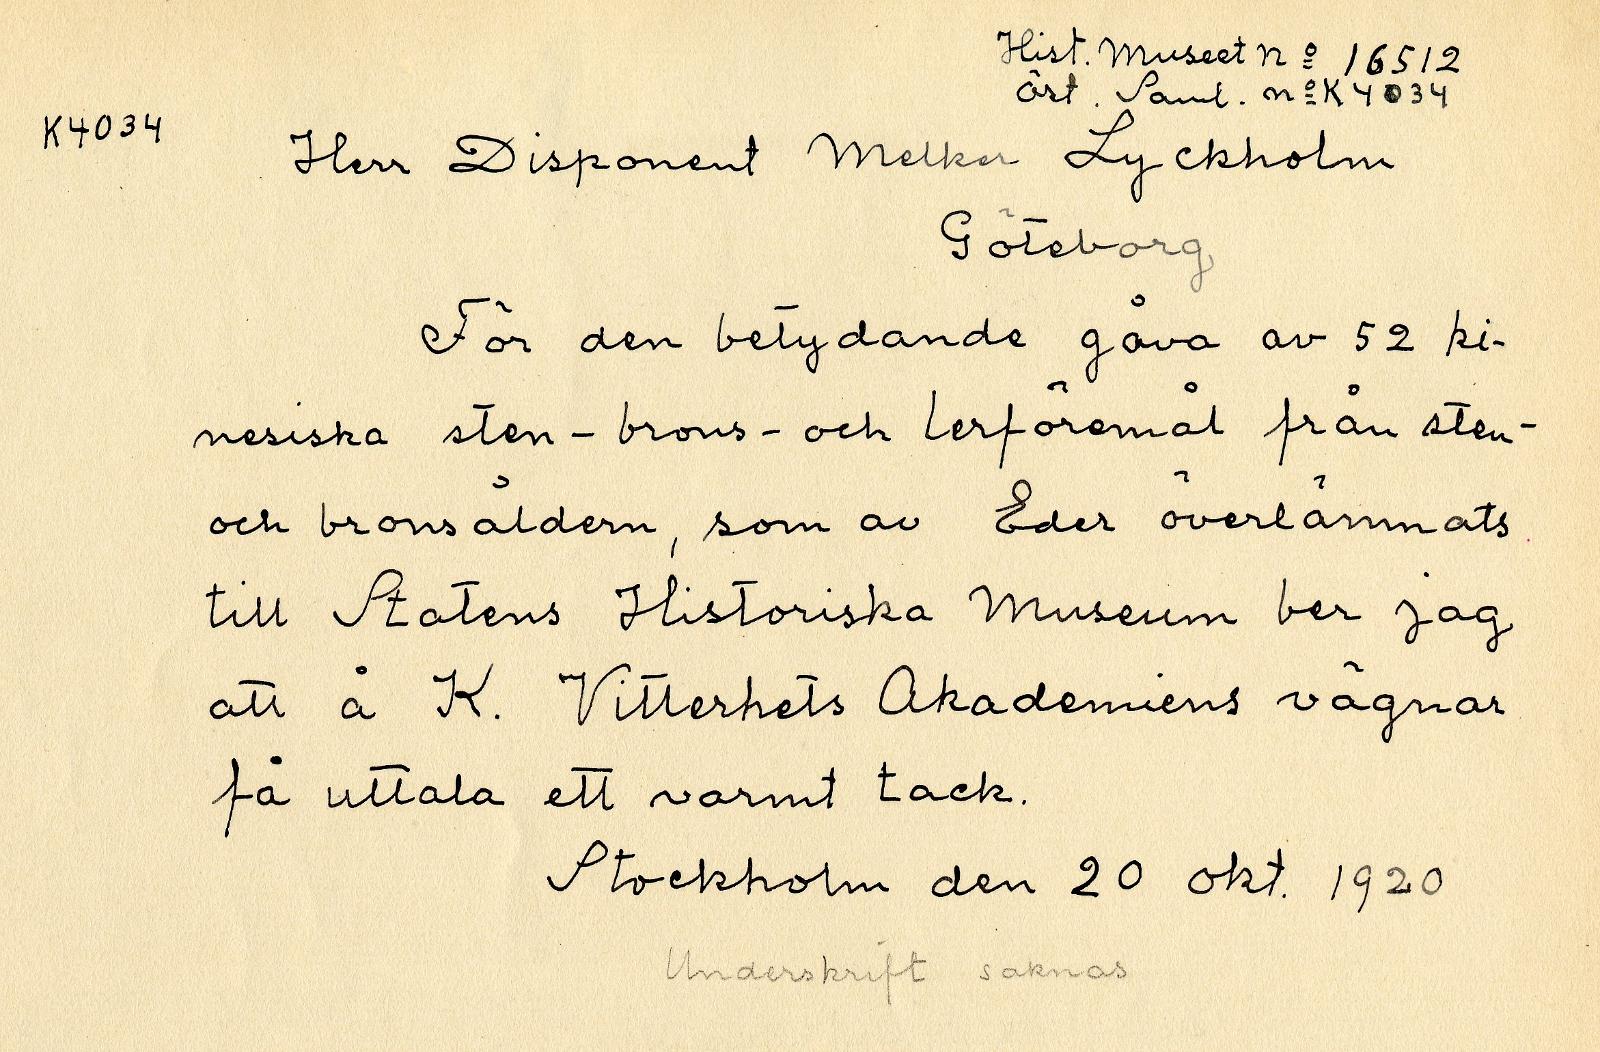 Hist. Museet No 16512
Öst. Saml. no K4034
K4034
Herr Disponent Melker Lyckholm
Göteborg
För den betydande gåva av 52 ki-
nesiska sten- brons- och lerföremål från sten-
och bronsåldern, som av Eder överlämnats
till Statens Historiska Museum ber jag
att å K. Vitterhets Akademiens vägnar
få uttala ett varmt tack.
Stockholm den 20 okt. 1920
Underskrift saknas